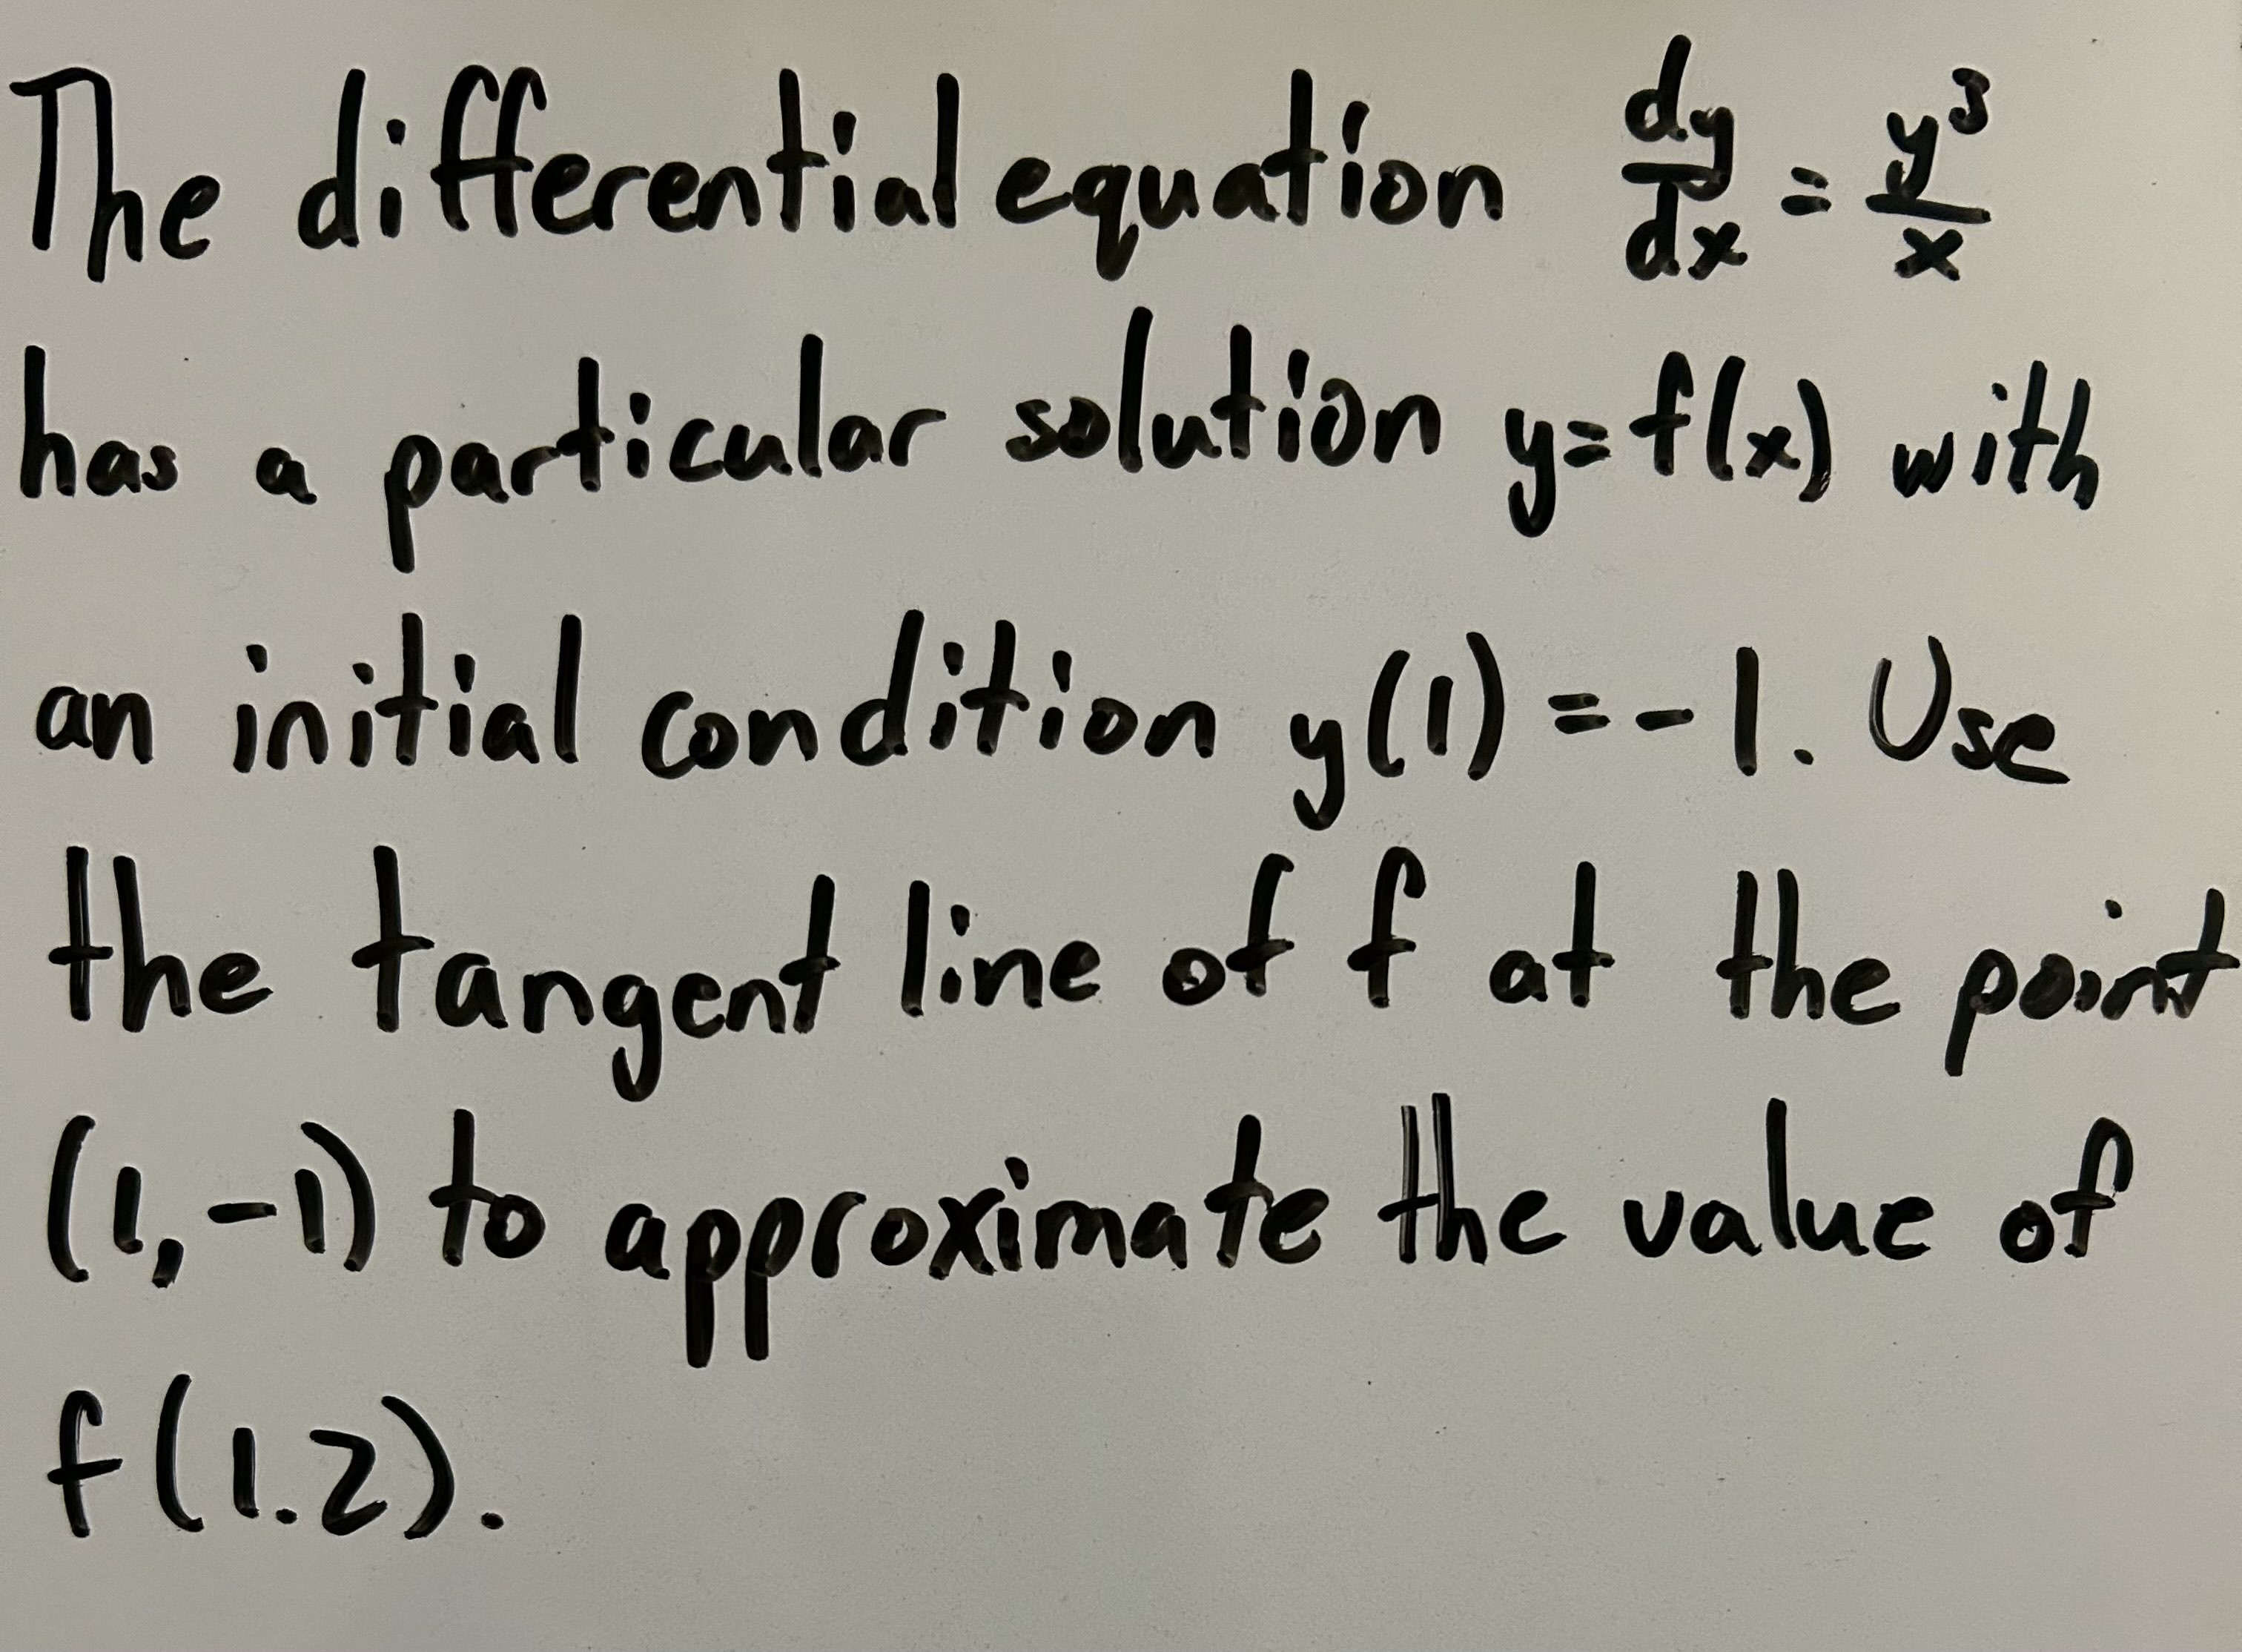 The differential equation dy/dx = y³/x
has a particular solution y=f(x) with
an initial condition y(1)=-1. Use
the tangent line of f at the point
(1,-1) to approximate the value of
f(1.2).